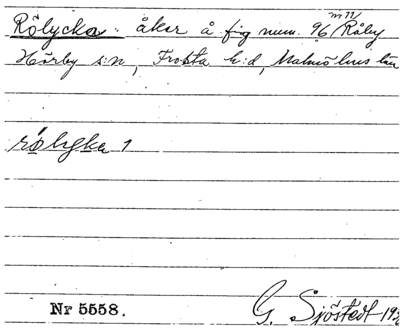 Rölycka. åker å fig num. 96 m 11/ Råby
Hörby s:n, Frosta h:d, Malmöhus län
rö̀lyka 1
Nr 5558. G. Sjöstedt